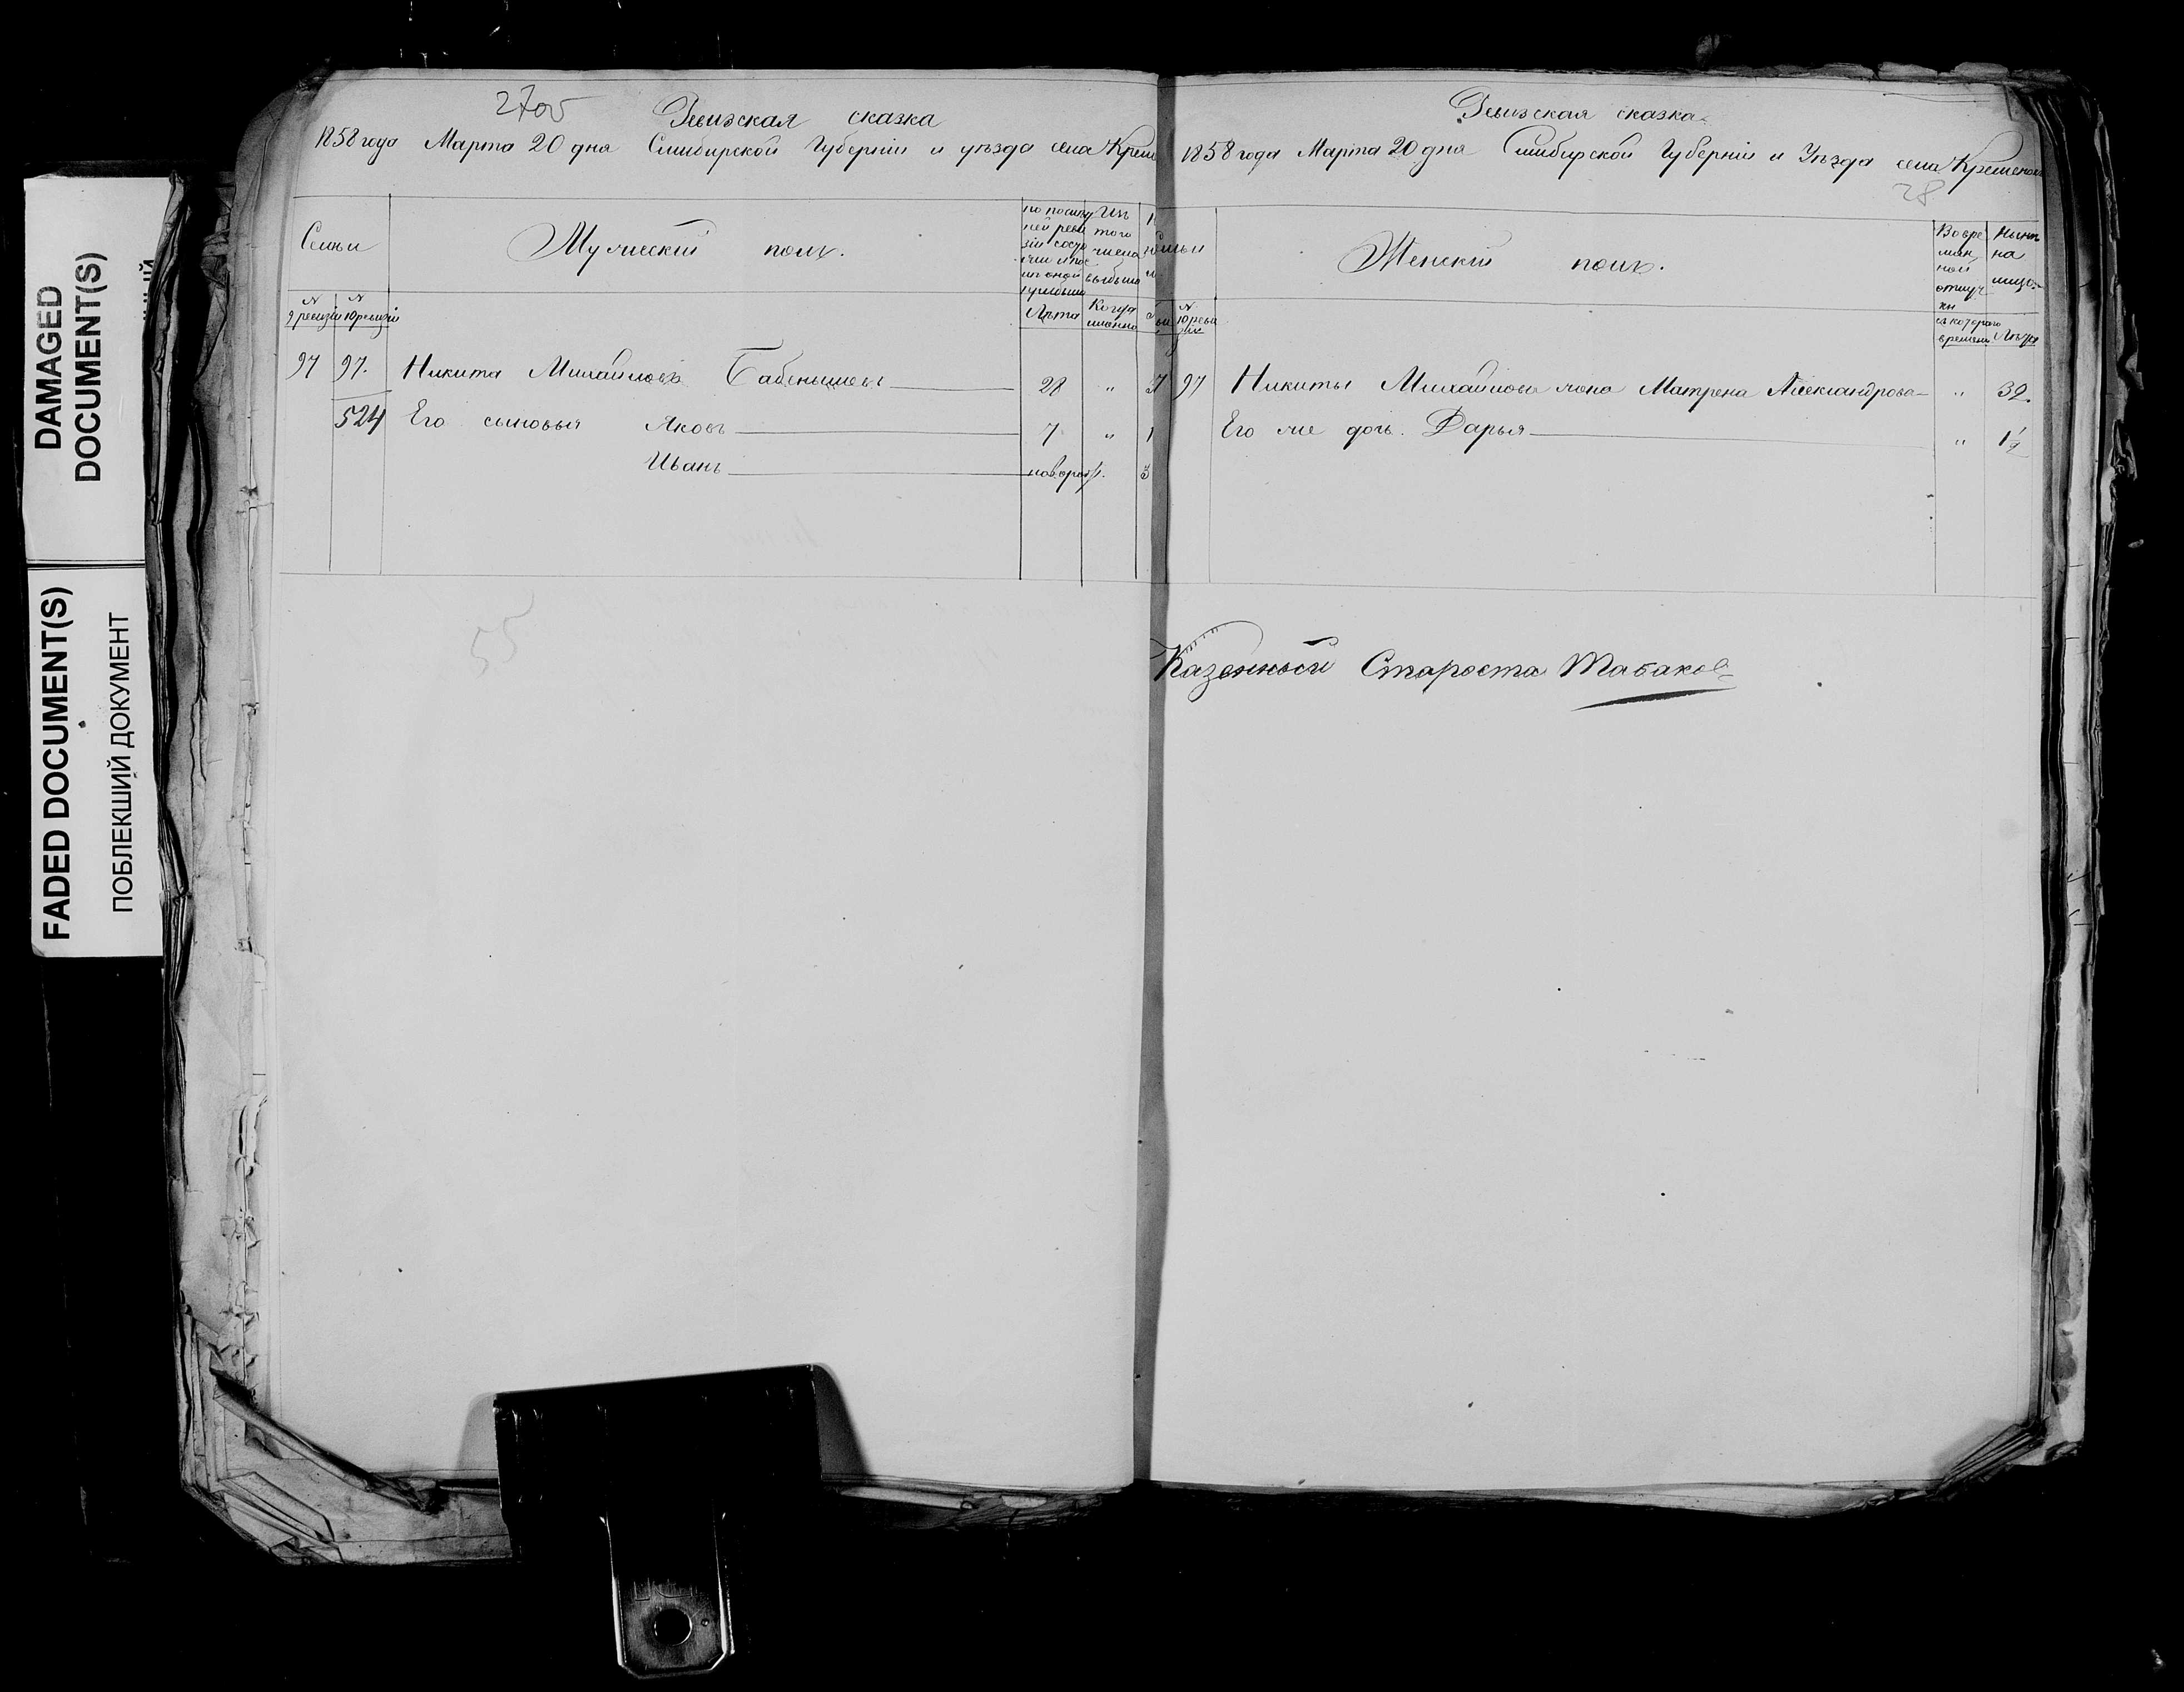 DAMAGED
DOCUMENT(S)
FADED DOCUMENT(S)
ПОБЛЕКШИЙ ДОКУМЕНТ
Ревизская сказка
1858 года Марта 20 дня Симбирской Губерніи и уѣзда села Крем
Семьи
Мужескій полъ.
по послед
ней реви
зіи состо
Изъ
того
числа
выбыло
№
9 ревизіи
№
10 ревизіи
Лѣта
Когда
именно
97 97. Никита Михайловъ Бабенышевъ 28 "
524 Его сыновья Яковъ 7 "
Иванъ новорож.
55
Ревизская сказка
1858 года Марта 20 дня Симбирской Губерніи и Уѣзда села Кременокъ
28
Женскій полъ.
Во вре
мен
ной
отлуч
ки
Нынѣ
на
лицо
№
10 реви
зіи
съ котораго
времени
Лѣта
97 Никиты Михайлова жена Матрена Александрова " 32.
Его же дочь Дарья " 1½
Казенный Староста Табаков